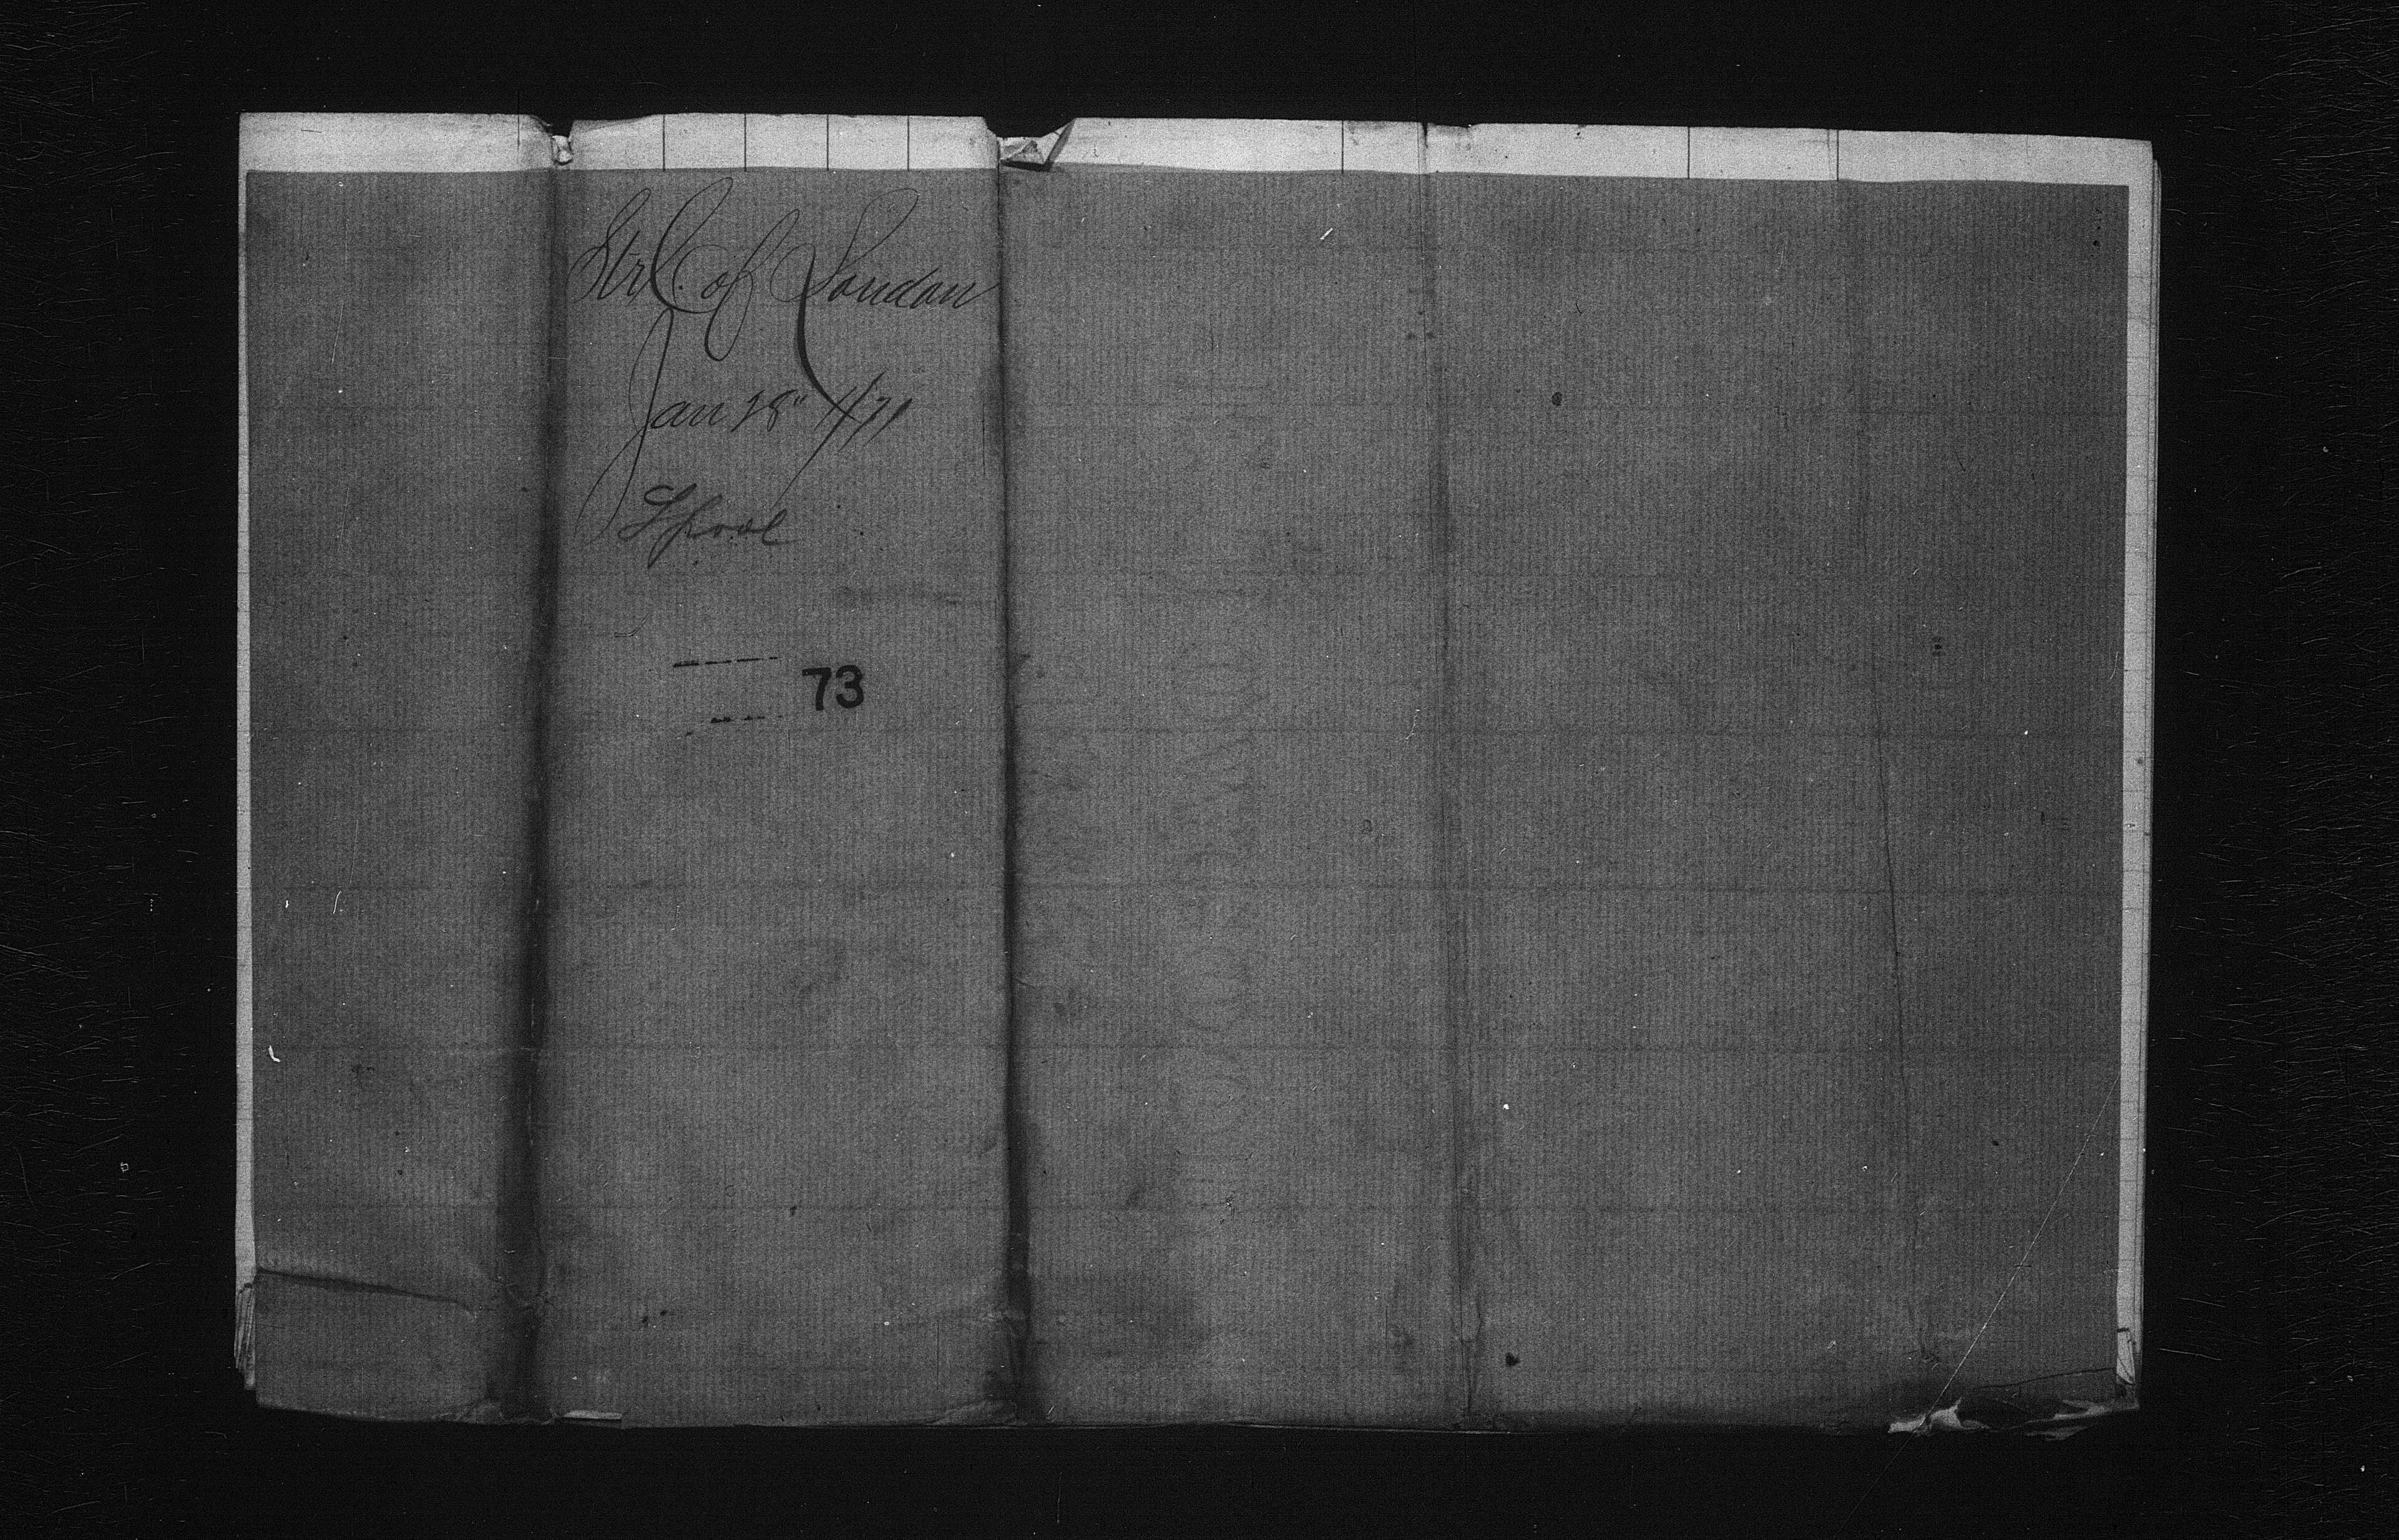 Str C. of London
Jan 28" 4/71
Lpool
73